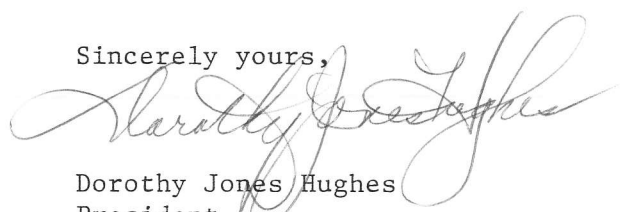 Sincerely yours,
Dorothy Jones Hughes
Dorothy Jones Hughes
President